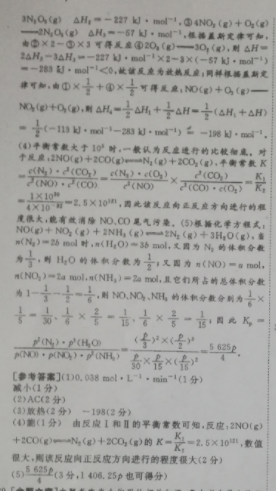 3N₂O₅(g) ΔH₂=-227 kJ·mol⁻¹,③4NO₂(g)+O₂(g)
⇌2N₂O₅(g) ΔH₃=-57 kJ·mol⁻¹,根据盖斯定律可知,
由②×2-③×3可得反应④2O₃(g)⇌3O₂(g),则ΔH=
2ΔH₂-3ΔH₃=-227 kJ·mol⁻¹×2-3×(-57 kJ·mol⁻¹)
=-283 kJ·mol⁻¹<0,故该反应为放热反应;同样根据盖斯定
律可知:由①×1/2+④×1/2可得反应,NO(g)+O₃(g)
NO₂(g)+O₂(g),则ΔH₄=1/2ΔH₁+1/2ΔH=1/2(ΔH₁+ΔH)
=1/2(-113 kJ·mol⁻¹-283 kJ·mol⁻¹)=-198 kJ·mol⁻¹.
(4)平衡常数大于10⁵时,一般认为反应进行的比较彻底。对
于反应,2NO(g)+2CO(g)⇌N₂(g)+2CO₂(g),平衡常数K
=c(N₂)·c²(CO₂)/c²(NO)·c²(CO)=c(N₂)·c(O₂)/c²(NO)×c²(CO₂)/c²(CO)·c(O₂)=K₂/K₁
=2.5×10¹²¹,因此该反应向正反应方向进行的程
度很大,能有效消除NO、CO尾气污染。(5)根据化学方程式:
NO(g)+NO₂(g)+2NH₃(g)⇌2N₂(g)+3H₂O(g),当
n(N₂)=2b mol时,n(H₂O)=3b mol,又因为N₂的体积分数
为1/3,则H₂O的体积分数为1/2;又因为n(NO)=a mol,
n(NO₂)=2a mol,n(NH₃)=2a mol,且它们所占的总体积分数
为1-1/3-1/2=1/6,则NO、NO₂、NH₃的体积分数分别为1/6×
1/5=1/30、1/6×2/5=1/15、1/6×2/5=1/15;因此Kₚ=
p²(N₂)·p³(H₂O)/p(NO)·p(NO₂)·p²(NH₃)=(p/3)²×(p/2)³/p/30×p/15×(p/15)²=5 625p/4.
[参考答案](1)0.038 mol·L⁻¹·min⁻¹(1分)
减小(1分)
(2)AC(2分)
(3)放热(2分) -198(2分)
(4)能(1分) 由反应Ⅰ和Ⅱ的平衡常数可知,反应,2NO(g)
+2CO(g)⇌N₂(g)+2CO₂(g)的K=K₂/K₁=2.5×10¹²¹,数值
很大,则该反应向正反应方向进行的程度很大(2分)
(5)5 625p/4(3分,1 406.25p也可得分)